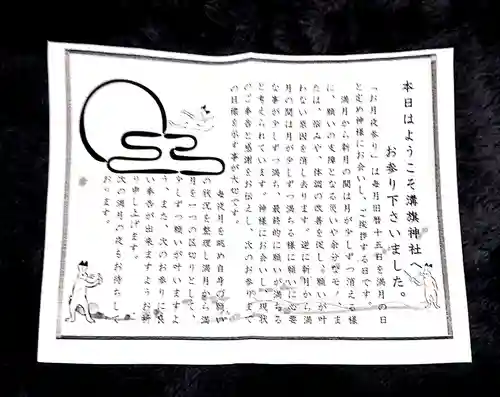 本日はようこそ溝旗神社へ
お参り下さいました。
「お月夜参り」は毎月旧暦十五日を満月の日
と定め神様にお会いし、ご挨拶する日です。
満月から新月の間は月が少しずつ消える様
に、願いの支障となる災いや余分な モノ、ま
たは、悩みや、体調の改善を促し、願いが叶
わない悪因を消し去ります。逆に新月から満
月の間は月が少しずつ満ちる様に願いに必要
な事が少しずつ満ち、最終的に願いが満ちる
と考えられています。神様にお会いし、現状
のご奉告と感謝をお伝えし、次のお参りまで
の目標を示す事が大切です。
毎夜月を眺め自身の願い
の状況を整理し満月から満
月を一つの区切りとして、
少しずつ願いが叶いますよ
う、また、次のお参りに良
い奉告が出来ますようお祈
り申し上げます。
次の満月の夜もお待ちして
おります。